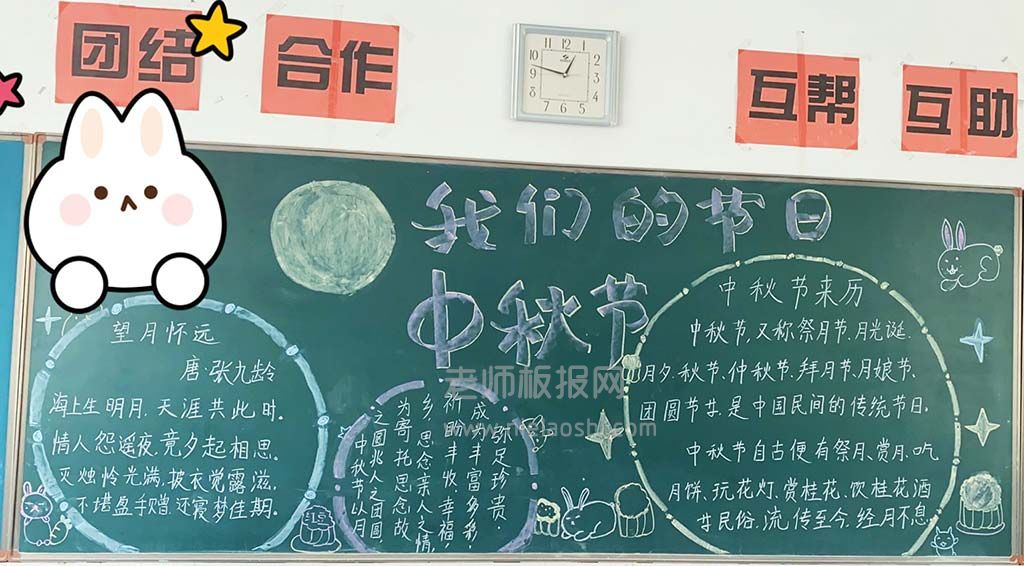 团结
合作
互帮
互助
我们的节日
中秋节
望月怀远
唐·张九龄
海上生明月，天涯共此时。
情人怨遥夜，竟夕起相思。
灭烛怜光满，披衣觉露滋。
不堪盈手赠，还寝梦佳期。
中秋节以月
之圆兆人之团圆，
为寄托思念故
乡，思念亲人之情，
祈盼丰收、幸福，
成为丰富多彩，
弥足珍贵、
中秋节来历
中秋节，又称祭月节、月光诞、
月夕、秋节、仲秋节、拜月节、月娘节、
团圆节等，是中国民间的传统节日。
中秋节自古便有祭月、赏月、吃
月饼、玩花灯、赏桂花、饮桂花酒
等民俗，流传至今，经月不息
老师板报网
12
1
2
3
4
5
6
7
8
9
10
11